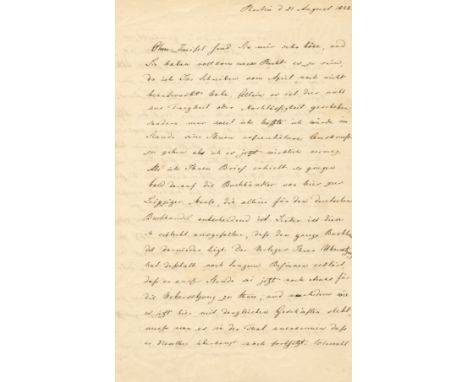 Berlin d 21 August 1848
Ohne Zweifel sind Sie mir sehr böse, und
Sie haben vollkommen Recht es zu sein,
da ich Ihr Schreiben vom April noch nicht
beantwortet habe. Allein es ist dies nicht
aus Trägheit oder Nachlässigkeit geschehen
sondern nur weil ich hoffte ich würde im
Stande sein Ihnen erfreulichere Auskunft
zu geben als ich es jetzt wirklich vermag.
Als ich Ihren Brief erhielt so gingen
bald darauf die Buchhändler von hier zur
Leipziger Messe, die allein für den deutschen
Buchhandel entscheidend ist. Leider ist diese
so schlecht ausgefallen, daß der ganze Buchhandel
darnieder liegt. Der Verleger Ihres
hat deshalb nach langem Besinnen erklärt
daß er außer Stande sei jetzt noch etwas für
die Uebersetzung zu thun, und nachdem wie
es jetzt hier mit dergleichen Geschäften steht
muß man es in der That anerkennen daß
er dieselbe überhaupt noch fortsetzt. Wiewohl